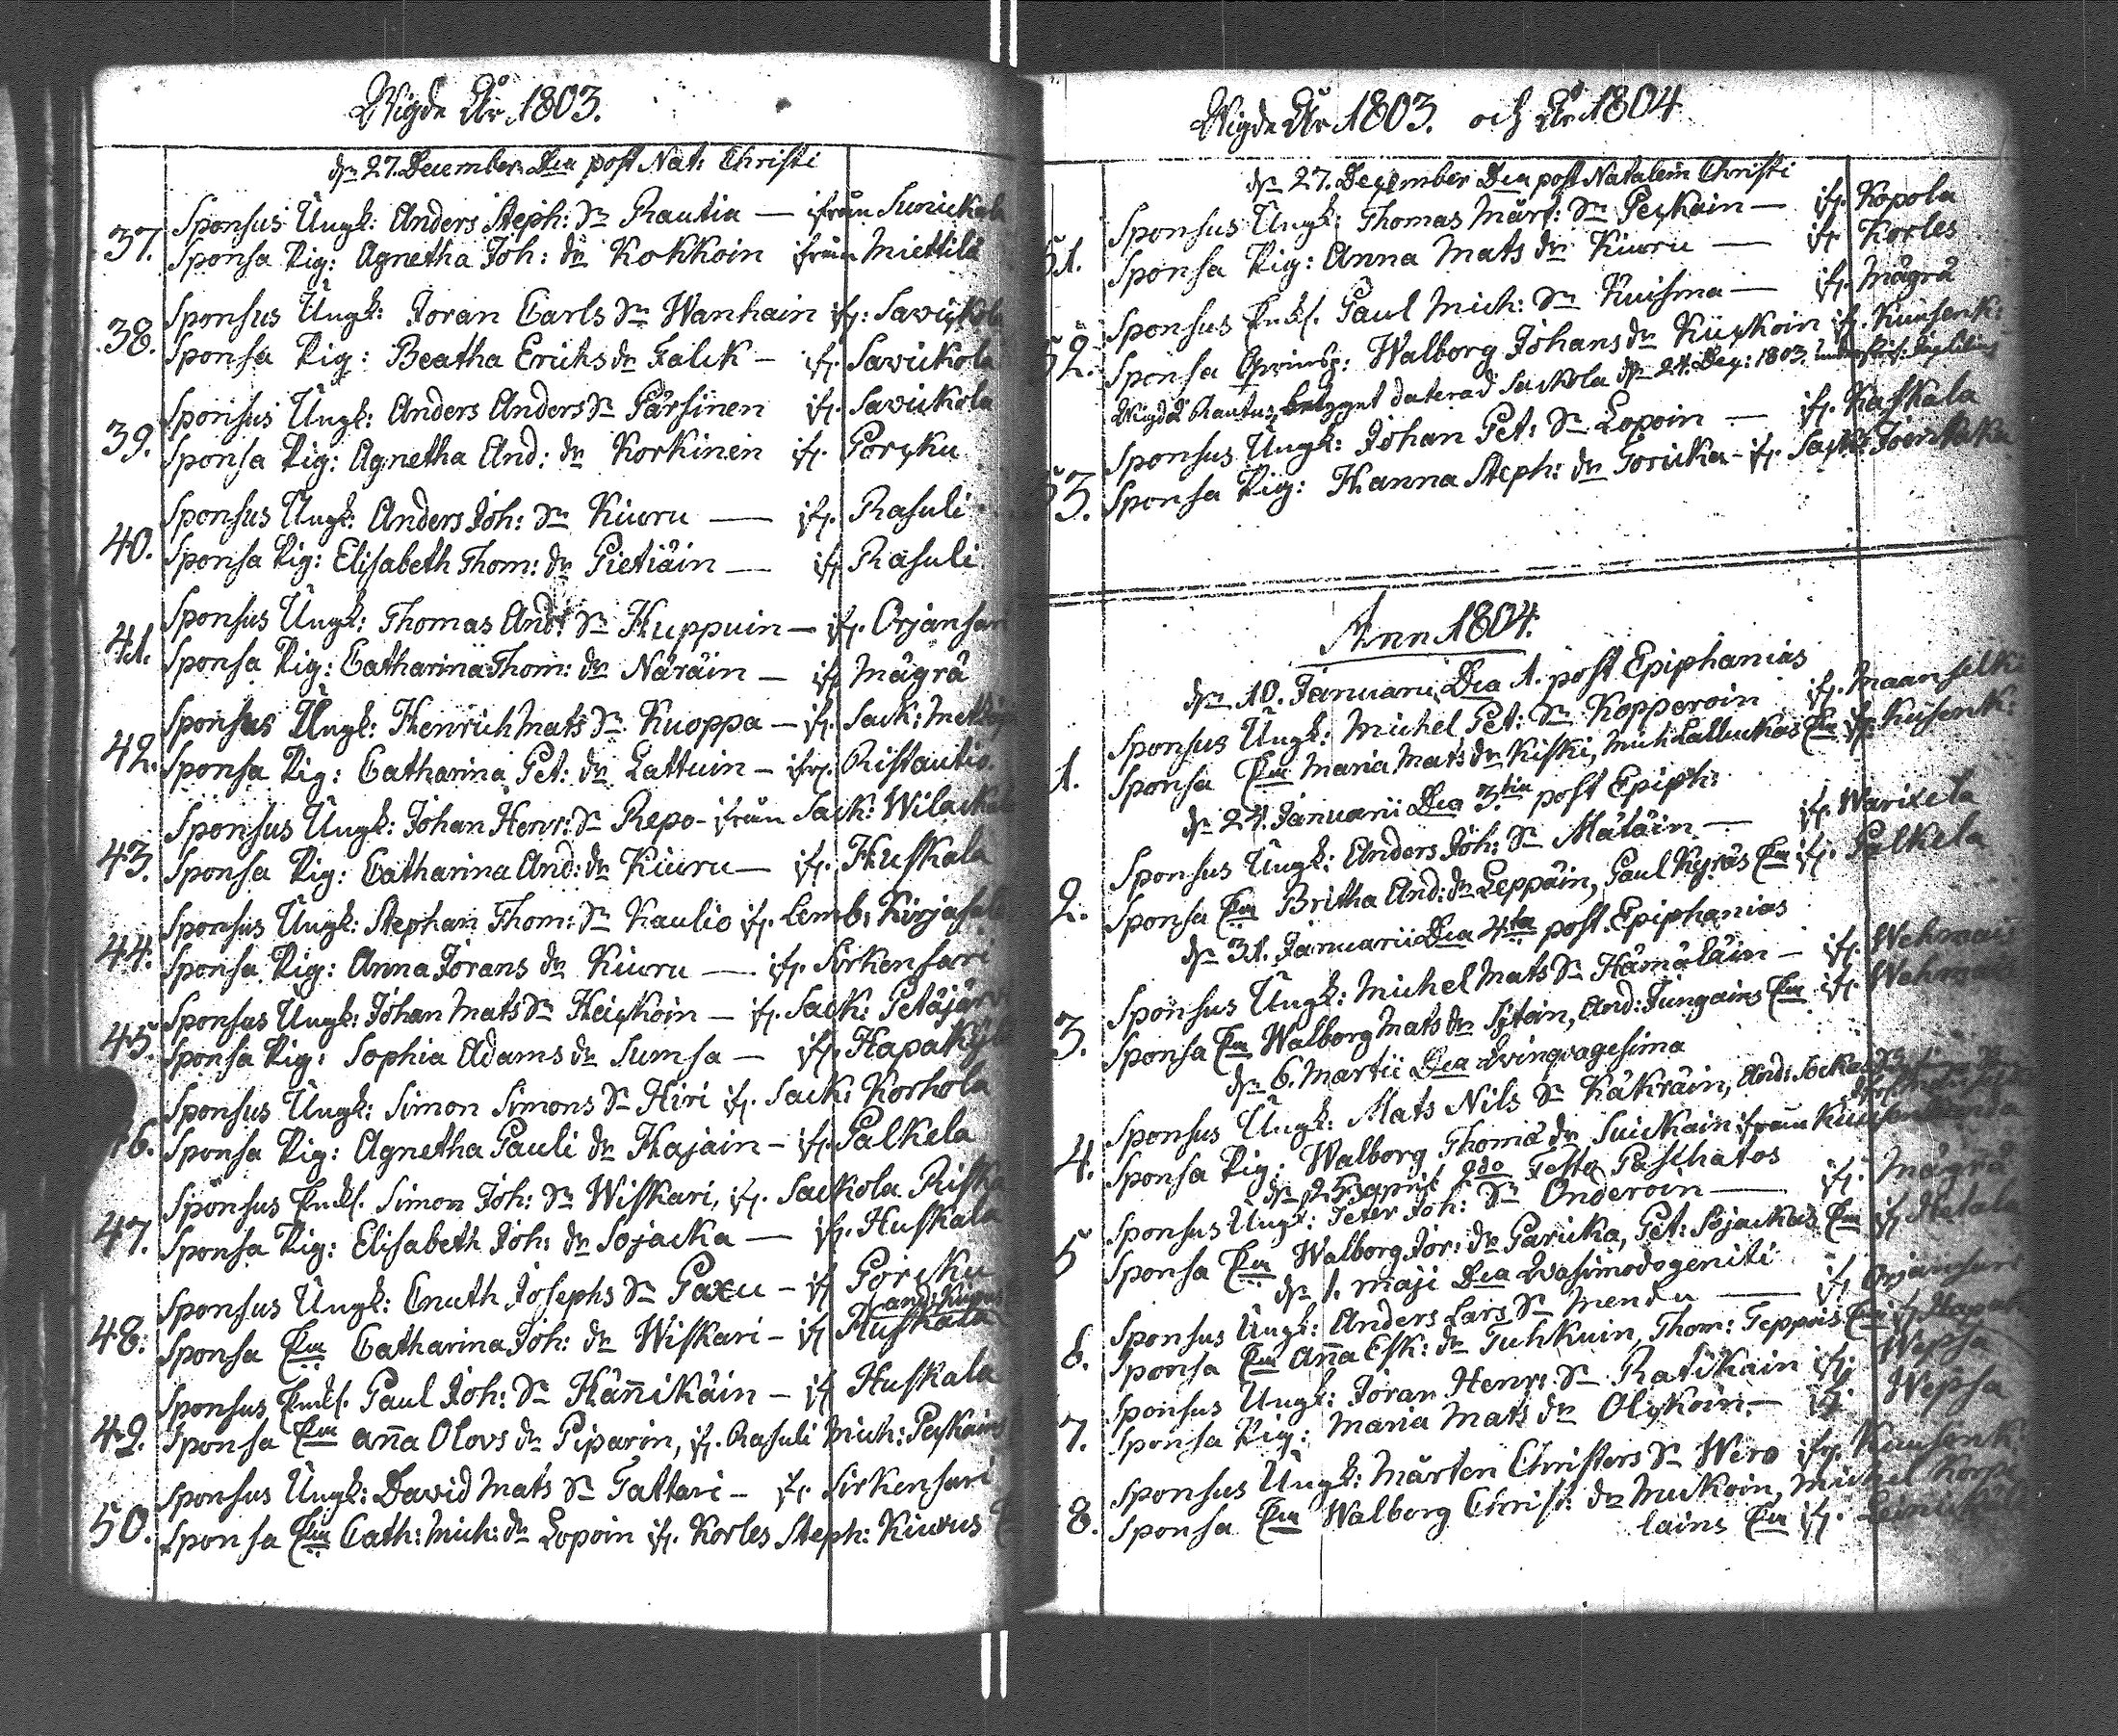 Wigde År 1803.
dn 27. December Dca post Nat: Christi
Sponsus Ungk: Anders Steph: Sn Rautia — ifrån
37. Sponsa Pig: Agnetha Joh: dr Kokkoin ifrån Miettilä
Sponsus Ungk: Joran Carls Sn Wanhain ifr:
38. Sponsa Pig: Beatha Erichs dr Falck — ifr. Savickola
Sponsus Ungk: Anders Anders Sn Pärsinen ifr. Savickola
39. Sponsa Pig: Agnetha And: dr Korkinen ifr. Porsku
Sponsus Ungk: Anders Joh: Sn Kiuru — ifr. Rasuli
40. Sponsa Pig: Elisabeth Thom: dr Pietiäin — ifr Rasuli
Sponsus Ungk: Thomas And: Sn Huppuin — ifr. Orjansari
41. Sponsa Pig: Catharina Thom: dr Näräin — ifr Mägrä
Sponsus Ungk: Henrich Mats Sn Kuoppa — ifr. Sack:
42. Sponsa Pig: Catharina Pet: dr Lattuin — ifr. Ristautio.
Sponsus Ungk: Johan Henr: Sn Repo — ifrån Sack:
43. Sponsa Pig: Catharina And: dr Kiuru — ifr. Huskala
Sponsus Ungk: Stephan Thom: Sn Kaulio ifr. Lemb:
44. Sponsa Pig: Anna Jörans dr Kiuru — ifr. Sirkensari
Sponsus Ungk: Johan Mats Sn Heiskoin — ifr. Sack: Petäjär
45. Sponsa Pig: Sophia Adams dr Sumsa — ifr. Hapakylä
Sponsus Ungk: Simon Simons Sn Hiri ifr. Sack: Korhola
46. Sponsa Pig: Agnetha Pauli dr Hajain — ifr. Palkela
Sponsus Enckl. Simon Joh: Sn Wiskari, ifr. Sackola Riska
47. Sponsa Pig: Elisabeth Joh: dr Sojacka — ifr. Huskala
Sponsus Ungk: Cnuth Josephs Sn Paxu — ifr Porsku
48. Sponsa Enk Catharina Joh: dr Wiskari — ifr Huskala
Sponsus Enckl. Paul Joh: Sn Hänikäin — ifr Huskala
49. Sponsa Enk Anna Olovs dr Piparin, ifr. Rasuli Mich: Peskains
Sponsus Ungk: David Mats Sn Tattari — ifr. Sirkensari
50. Sponsa Enk Cath: Mich: dr Lopoin ifr. Korles Steph: Kiurus
Wigde År 1803. och År 1804
dn 27. December Dca post Natalem Christi
Sponsus Ungk: Thomas Märt: Sn Peskain — ifr. Kopola
51. Sponsa Pig: Anna Mats dr Kiuru — ifr Korles
Sponsus Enckl. Paul Mich: Sn Kuisma — ifr. Mägrä
52. Sponsa Walborg Johans dr Kiiskoin ifr. Kuusenk:
Wigde i Rautus, betyget daterad Sackola dn 24. Dec: 1803.
Sponsus Ungk: Johan Pet: Sn Lopoin — ifr. Haskala
53. Sponsa Pig: Hanna Steph: dr Toricka — ifr.
Ann 1804.
dn 10. Januarii, Dca 1. post Epiphanias
Sponsus Ungk: Michel Pet: Sn Kopperoin ifr. Maanselki
1. Sponsa Enk Maria Mats dr Kiski, Mich: Lalluckas Enk ifr. Kusenk:
dn 24. Januarii Dca 3tia post Epiph:
Sponsus Ungk: Anders Joh: Sn Mätäin — ifr. Warixela
2. Sponsa Enk Britha And: dr Leppäin, Paul Kyräs Enk ifr. Palkela
dn 31. Januarii Dca 4ta post Epiphanias
Sponsus Ungk: Michel Mats Sn Hämäläin — ifr. Wehmais
3. Sponsa Enk Walborg Mats dr And: Tungains Enk ifr. Wehm
dn 6. Martii Dca Qvinqvagesima
Sponsus Ungk: Mats Nils Sn Käkräin, And:
4. Sponsa Pig: Walborg Thomæ dr Suickain ifrån
dn 25 April 2do Festo Paschatos
Sponsus Ungk: Peter Joh: Sn Onderoin — ifr. Mägrä
5 Sponsa Enk Walborg Jör: dr Paricka, Pet: Sojackas Enk ifr Hatala
dn 1. Maji Dca Qvasimodogeniti
Sponsus Ungk: Anders Lars Sn Mendu — ifr Orjansari
6. Sponsa Enk Anna Esk: dr Tuhkuin, Thom: Teppois Enk ifr Hapak
Sponsus Ungk: Joran Henr: Sn Ratikain ifr. Wepsa
7. Sponsa Pig: Maria Mats dr Olykoin — ifr. Wepsa
Sponsus Ungk: Mårten Christers Sn Wero ifr. Kuusenk:
8. Sponsa Enk Walborg Christ: dr Muckoin, Michel Korpe
lains Enk ifr.